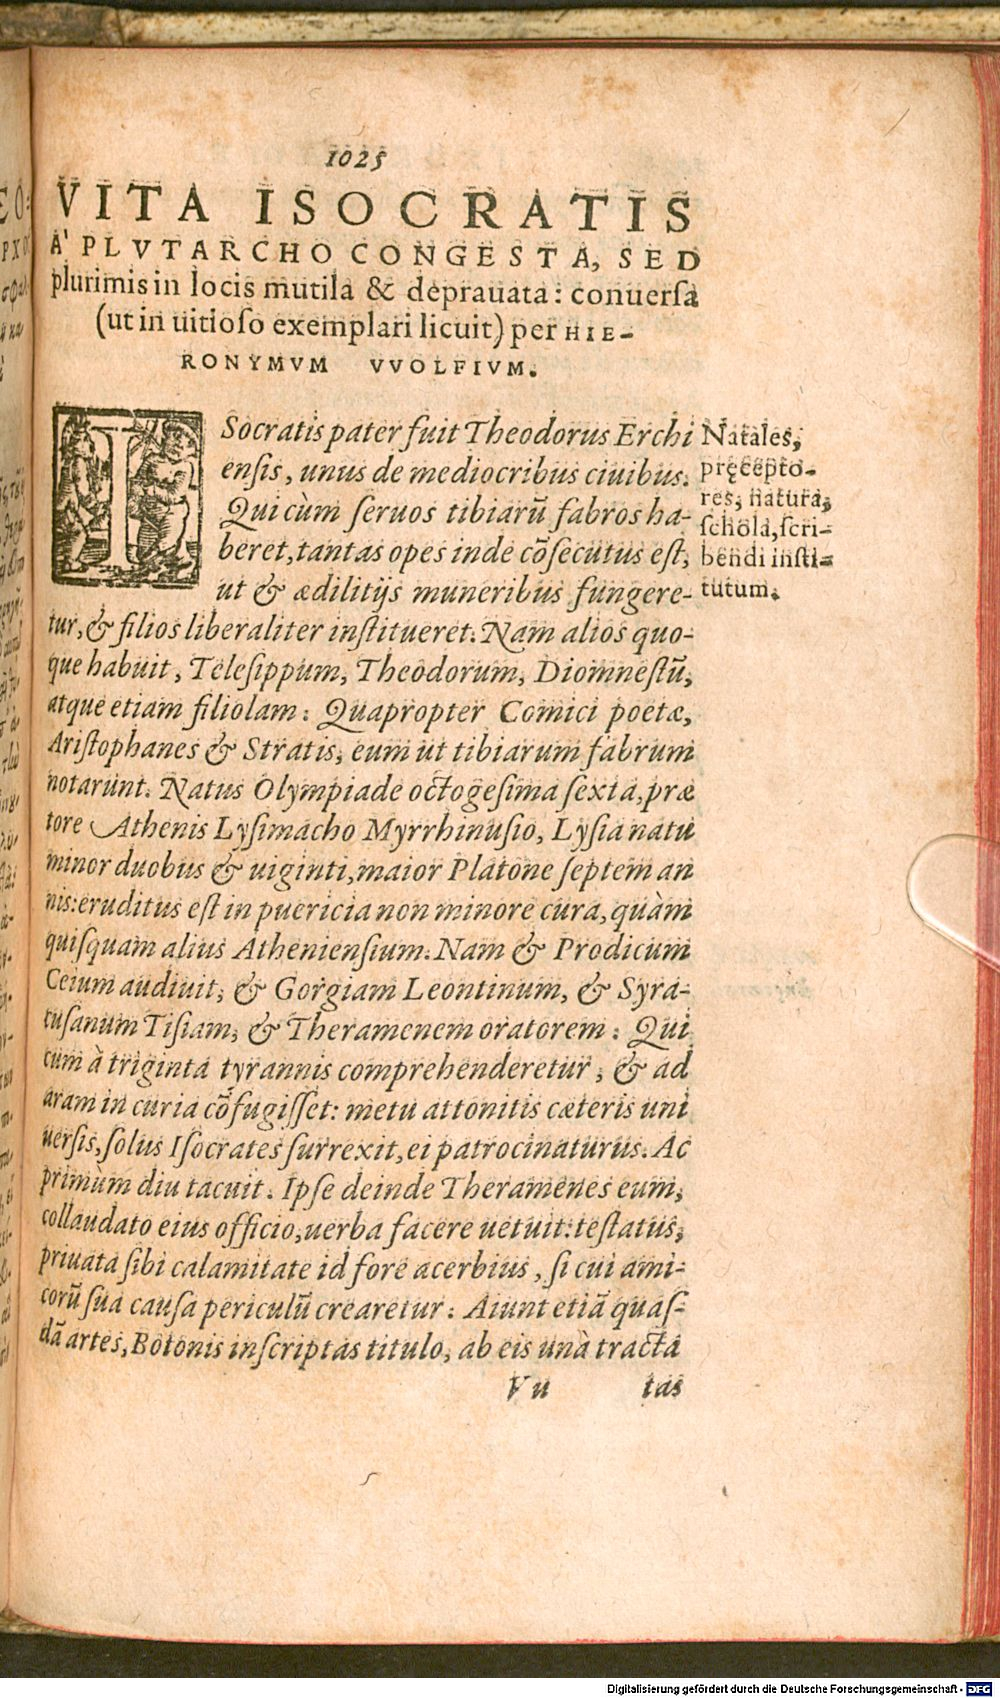 1025
VITA ISOCRATIS
A' PLVTARCHO CONGESTA, SED
plurimis in locis mutila & deprauata: conuersa
(ut in uitioso exemplari licuit) per HIE-
RONYMVM VVOLFIVM.
ISocratis pater fuit Theodorus Erchi
ensis, unus de mediocribus ciuibus.
Qui cùm seruos tibiarũ fabros ha-
beret, tantas opes inde cõsecutus est,
ut & ædilitijs muneribus fungere-
tur, & filios liberaliter institueret. Nam alios quo-
que habuit, Telesippum, Theodorum, Diomnestũ,
atque etiam filiolam: Quapropter Comici poetæ,
Aristophanes & Stratis, eum ut tibiarum fabrum
notarunt. Natus Olympiade octogesima sexta, præ
tore Athenis Lysimacho Myrrhinusio, Lysia natu
minor duobus & uiginti, maior Platone septem an
nis: eruditus est in puericia non minore cura, quàm
quisquam alius Atheniensium. Nam & Prodicum
Ceium audiuit, & Gorgiam Leontinum, & Syra-
cusanum Tisiam, & Theramenem oratorem: Qui
cum à triginta tyrannis comprehenderetur, & ad
aram in curia cõfugisset: metu attonitis cæteris uni
uersis, solus Isocrates surrexit, ei patrocinaturus. Ac
primùm diu tacuit. Ipse deinde Theramenes eum,
collaudato eius officio, uerba facere uetuit: testatus,
priuata sibi calamitate id fore acerbius, si cui ami-
corũ sua causa periculũ crearetur: Aiunt etiã quas-
dã artes, Botonis inscriptas titulo, ab eis unà tracta
Vu tas
Natales,
pręcepto-
res, natura,
schola, scri-
bendi insti-
tutum.
Digitalisierung gefördert durch die Deutsche Forschungsgemeinschaft - DFG